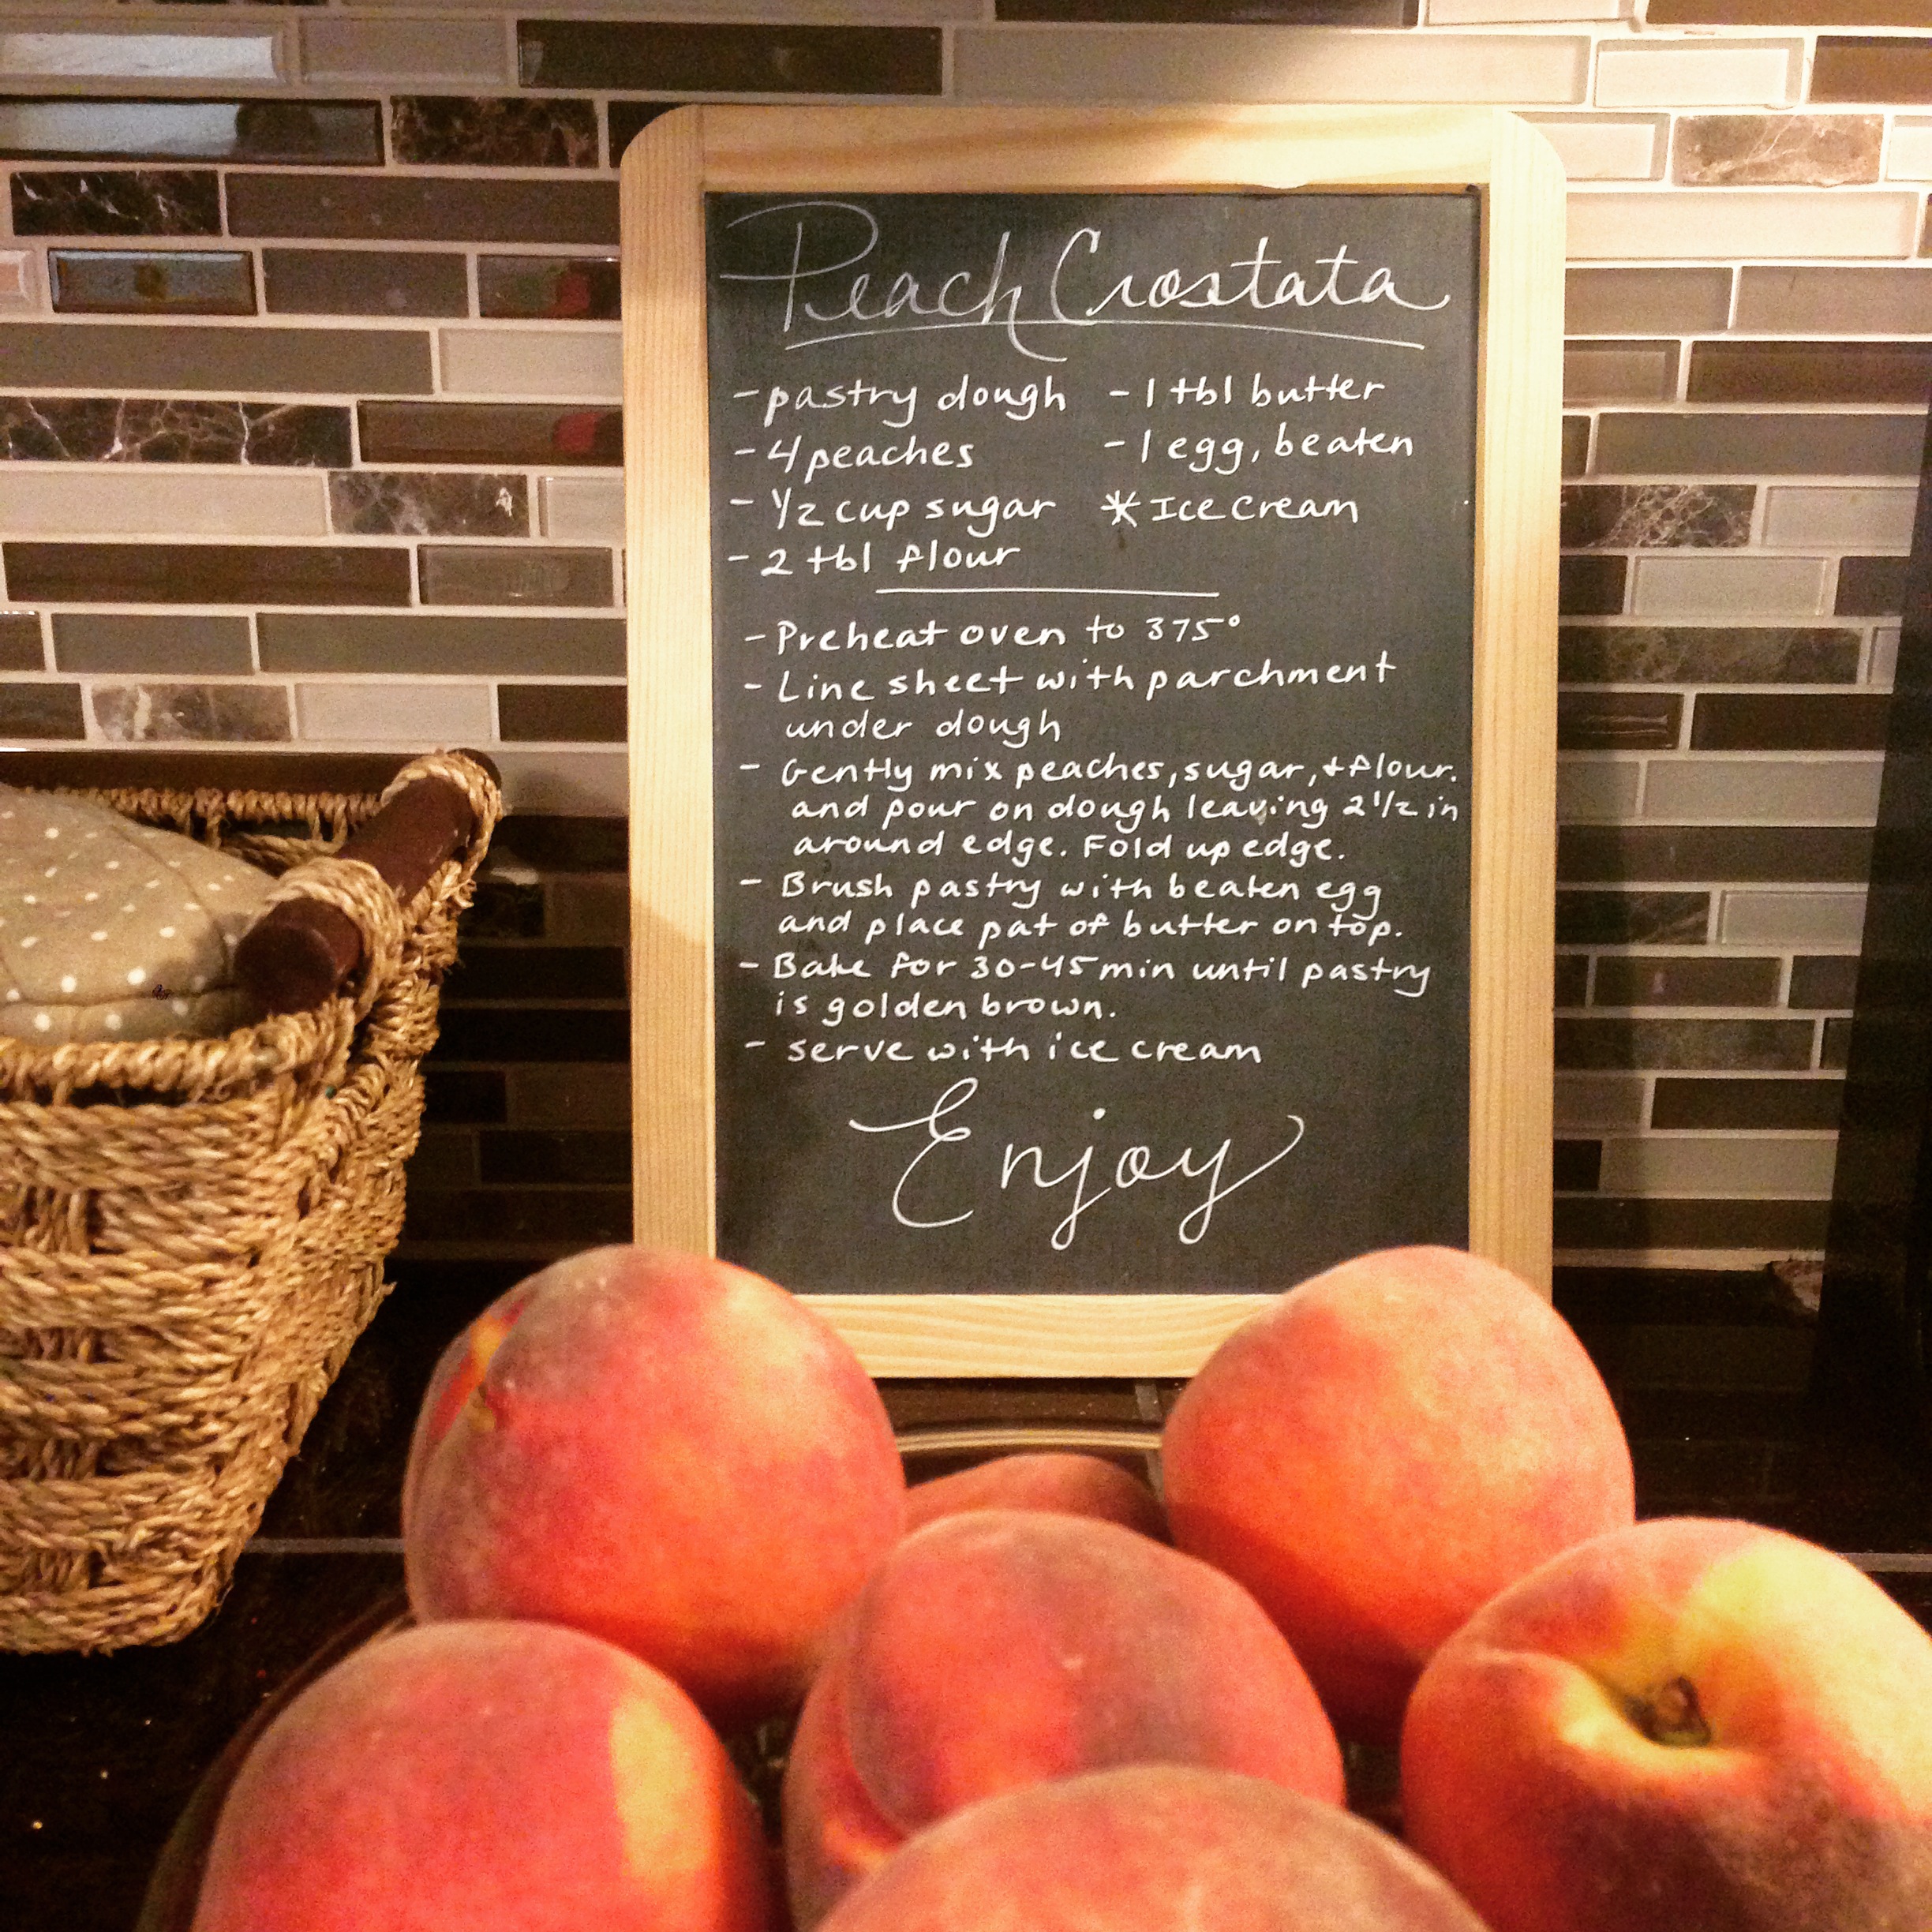 Peach Crostata
- pastry dough - 1 tbl butter
- 4 peaches - 1 egg, beaten
- 1/2 cup sugar * Ice cream
- 2 tbl flour
- Preheat oven to 375°
- Line sheet with parchment
under dough
- Gently mix peaches, sugar, + flour.
and pour on dough leaving 2 1/2 in
around edge. Fold up edge.
- Brush pastry with beaten egg
and place pat of butter on top.
- Bake for 30-45 min until pastry
is golden brown.
- serve with ice cream
Enjoy